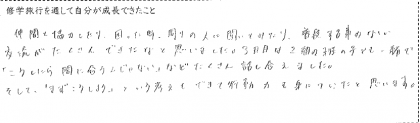 修学旅行を通して自分が成長できたこと
仲間と協力したり、困った時、周りの人に聞いたりだり、普段する事のない
交流がたくさんできたなと思いました。3日目は2組の3班の子とも、船で
「こうしたら間に合うんじゃない」などたくさん話し合えました。
そして、「まずこうしよう」という考えもできて行動力も身についたと思います。